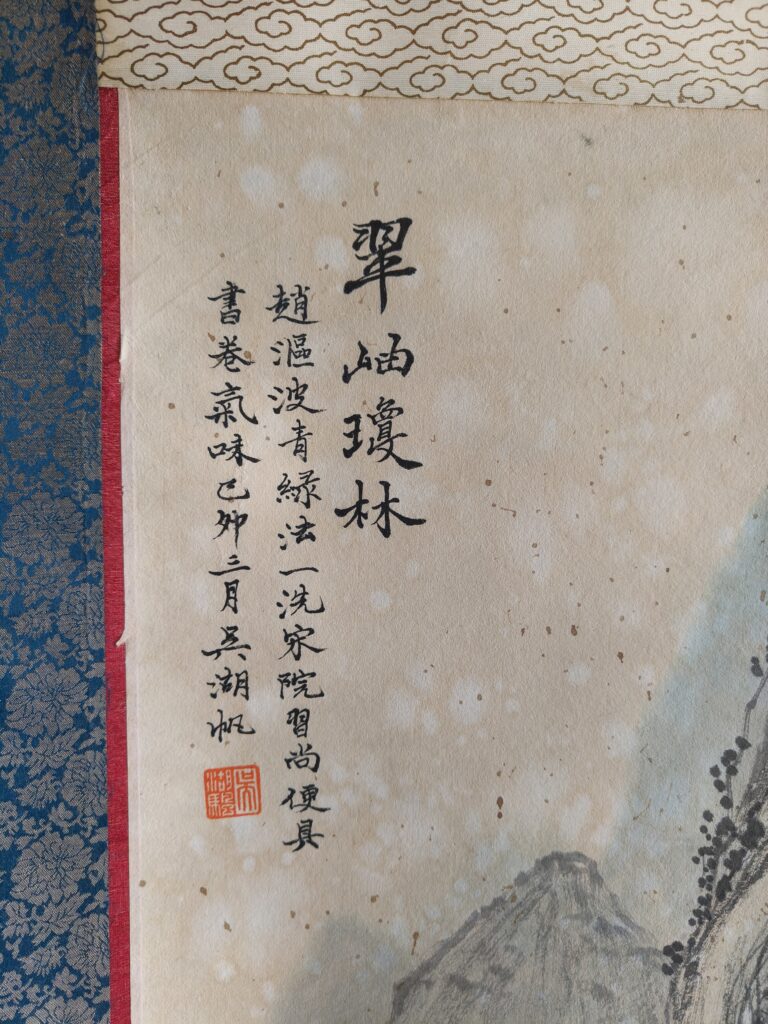 翠岫瓊林
趙漚波青綠法一洗宋院習尚便具
書卷氣味己卯三月吳湖帆
吳湖颿